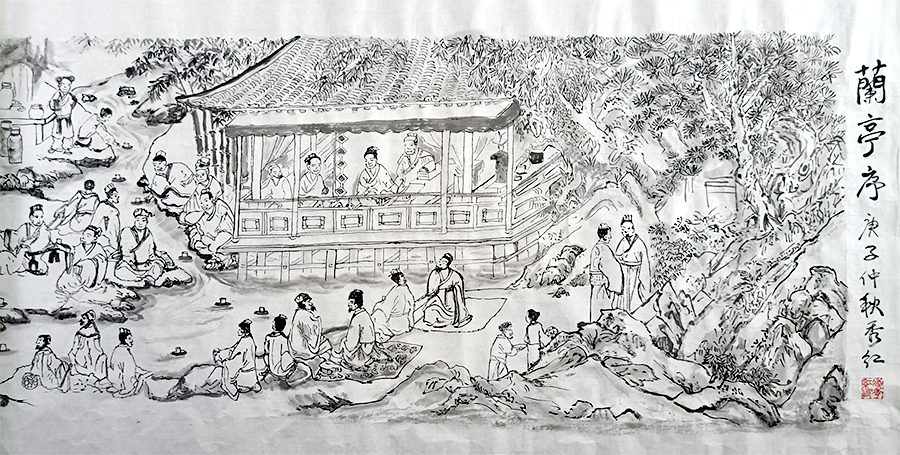 蘭亭序 庚子仲秋秀红